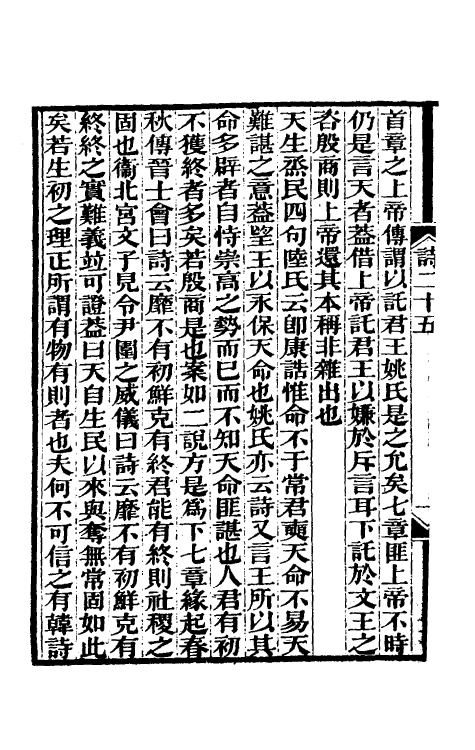 首章之上帝傳謂以託君王姚氏是之允矣七章匪上帝不時
仍是言天者葢借上帝託君王以嫌於斥言耳下託於文王之
咨殷商則上帝還其本稱非雜出也
天生烝民四句陸氏云卽康誥惟命不于常君奭天命不易天
難諶之意葢朢王以永保天命也姚氏亦云詩又言王所以其
命多辟者自恃崇高之勢而巳而不知天命匪諶也人君有初
不獲終者多矣若殷商是也案如二說方是爲下七章緣起春
秋傳晉士會曰詩云靡不有初鮮克有終君能有終則社稷之
固也衞北宮文子見令尹圍之威儀曰詩云靡不有初鮮克有
終終之實難義並可證葢曰天自生民以來與奪無常固如此
矣若生初之理正所謂有物有則者也夫何不可信之有韓詩
詩二十五